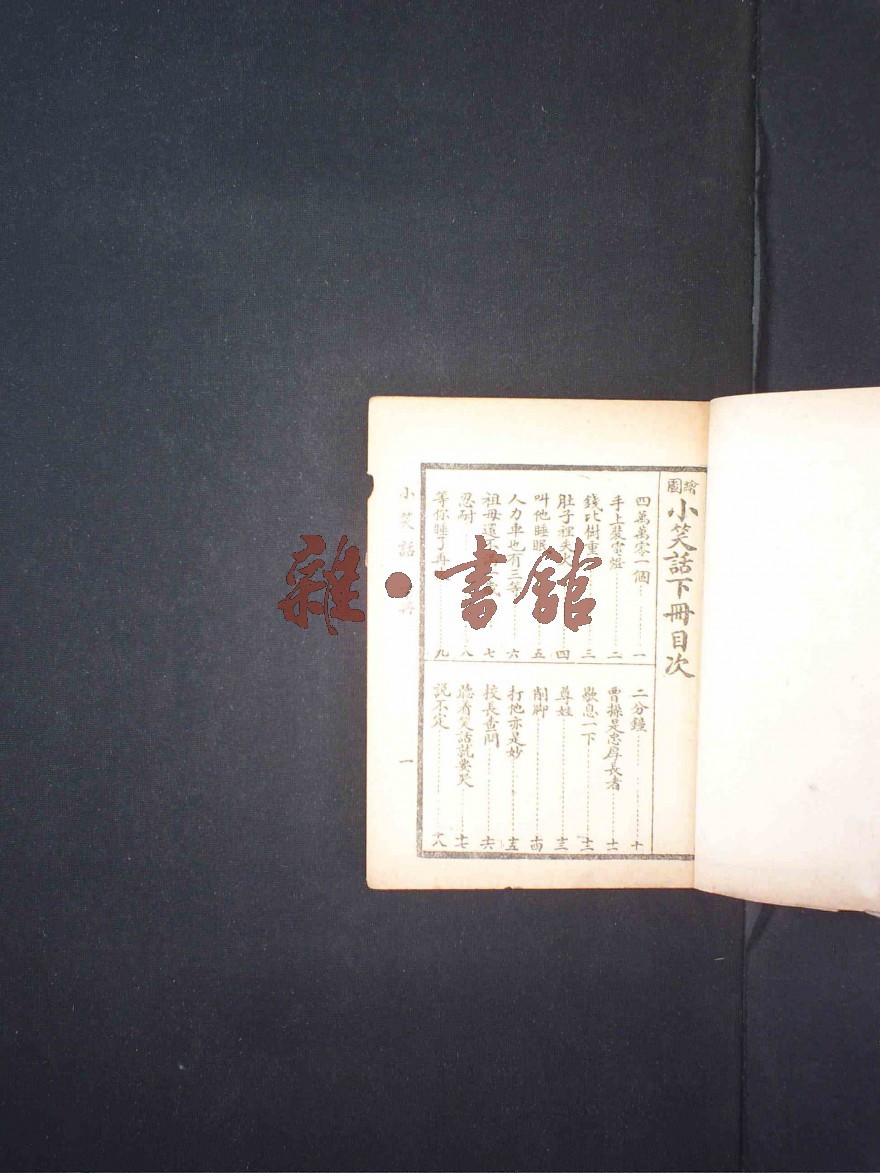 繪圖小笑話下冊目次
四萬萬零一個 一
手上裝電燈 二
錢比樹重 三
肚子裡失火 四
叫他睡眠 五
人力車也有三等 六
祖母還 七
忍耐 八
等你睡了再 九
二分鐘 十
曹操是忠厚長者 十一
歇息一下 十二
尊姓 十三
削脚 十四
打他亦是妙 十五
校長查問 十六
聽着笑話就要哭 十七
說不定 十八
小笑話 冊
一
雜·書館